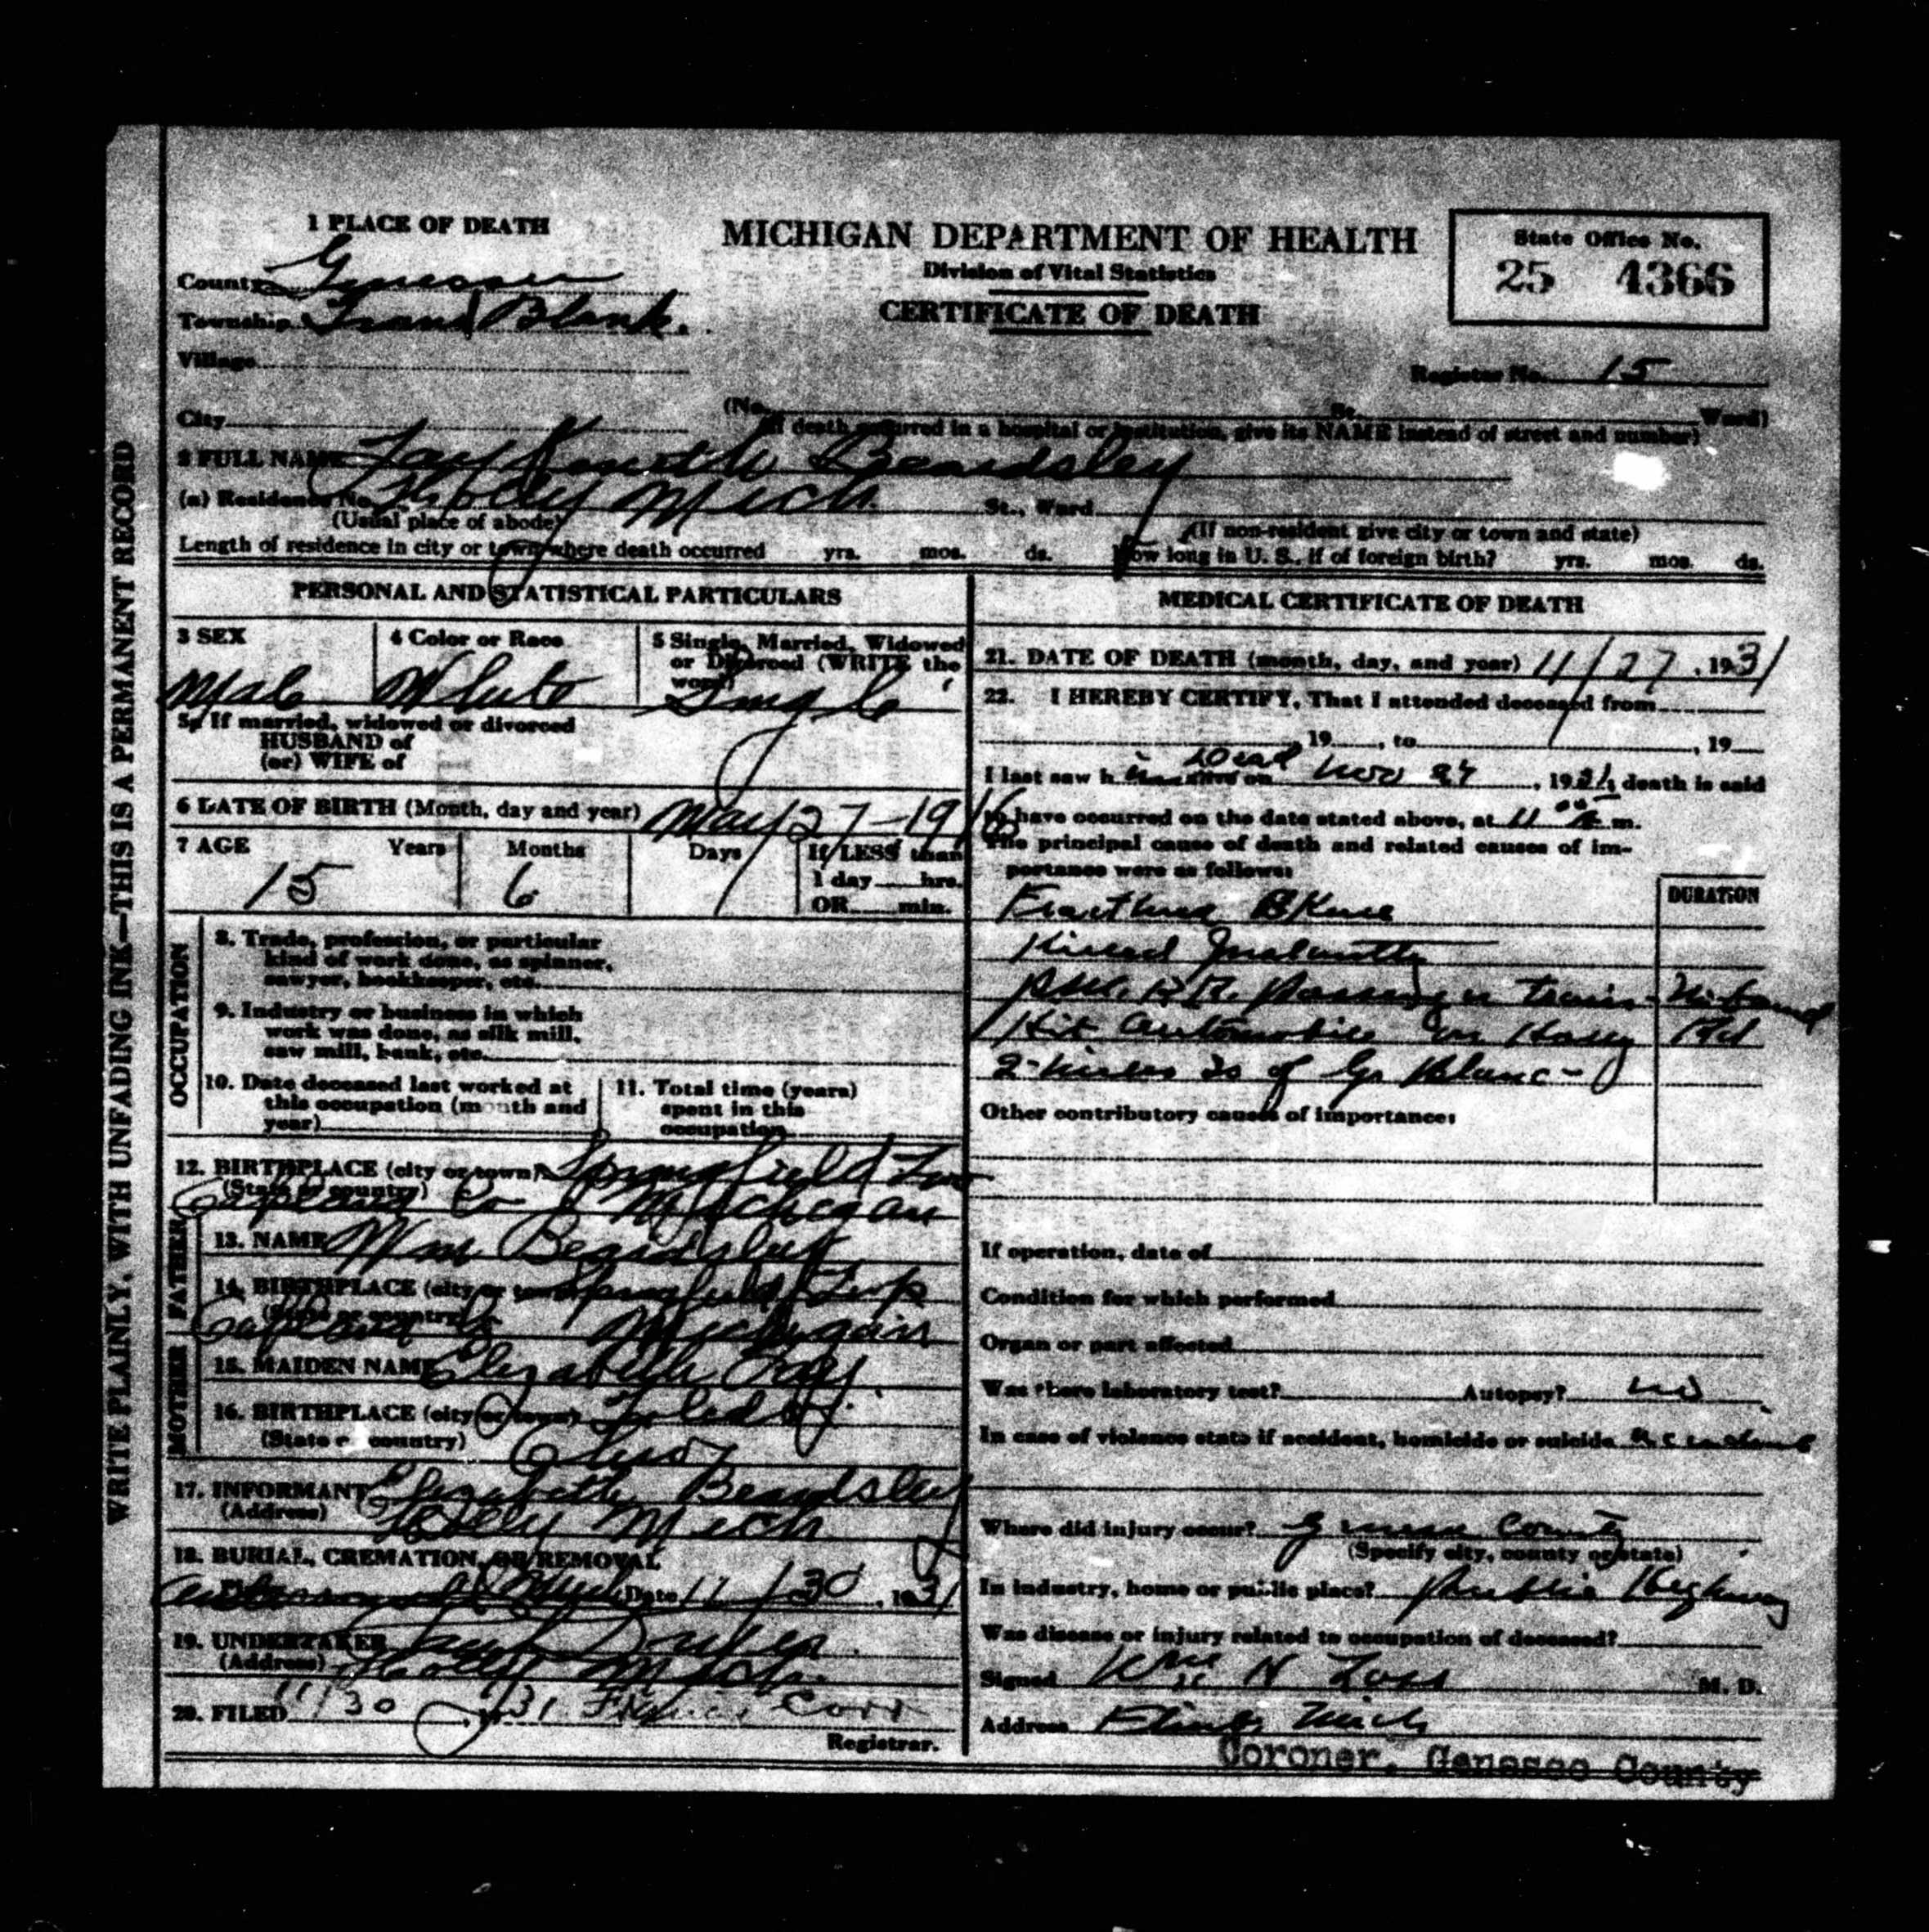 1 PLACE OF DEATH
MICHIGAN DEPARTMENT OF HEALTH
Division of Vital Statistics
CERTIFICATE OF DEATH
State Office No.
25 4366
County Genesee
Township Grand Blank.
Village
Register No. 15
City
(No. St. Ward)
(If death occurred in a hospital or institution, give its NAME instead of street and number)
2 FULL NAME Beardsley
(a) Residence No. Holly Mich. St., Ward
(Usual place of abode) (If non-resident give city or town and state)
Length of residence in city or town where death occurred yrs. mos. ds. How long in U. S., if of foreign birth? yrs. mos. ds.
WRITE PLAINLY, WITH UNFADING INK—THIS IS A PERMANENT RECORD
PERSONAL AND STATISTICAL PARTICULARS
3 SEX
Male
4 Color or Race
White
5 Single, Married, Widowed
or Divorced (WRITE the
word)
Single
5a If married, widowed or divorced
HUSBAND of
(or) WIFE of
6 DATE OF BIRTH (Month, day and year) May 27-1916
7 AGE Years Months Days If LESS than
1 day hrs.
OR min.
15 6
OCCUPATION
8. Trade, profession, or particular
kind of work done, as spinner,
sawyer, bookkeeper, etc.
9. Industry or business in which
work was done, as silk mill,
saw mill, bank, etc.
10. Date deceased last worked at
this occupation (month and
year)
11. Total time (years)
spent in this
occupation
12. BIRTHPLACE (city or town) Springfield Twp
(State or country) Oakland Co Michigan
FATHER
13. NAME Wm Beardsley
14. BIRTHPLACE (city or town) Springfield Twp
(State or country) Oakland Co Michigan
MOTHER
15. MAIDEN NAME Elizabeth
16. BIRTHPLACE (city or town) Toledo
(State or country) Ohio
17. INFORMANT Elizabeth Beardsley
(Address) Holly Mich
18. BURIAL, CREMATION, OR REMOVAL
Mich Date 11/30, 1931
19. UNDERTAKER
(Address) Holly Mich.
20. FILED 11/30 31
Registrar.
MEDICAL CERTIFICATE OF DEATH
21. DATE OF DEATH (month, day, and year) 11/27, 1931
22. I HEREBY CERTIFY, That I attended deceased from
19 , to , 19
Dead
I last saw h im alive on Nov 27, 1931, death is said
to have occurred on the date stated above, at 11 m.
The principal cause of death and related causes of im-
portance were as follows:
DURATION
Fracture
Killed Instantly
P.M. R.R. Passenger train
Hit automobile on Holly Rd
2-miles So of Gr Blanc-
Other contributory causes of importance:
If operation, date of
Condition for which performed
Organ or part affected
Was there laboratory test? Autopsy? no
In case of violence state if accident, homicide or suicide
Where did injury occur? Genesee County
(Specify city, county or state)
In industry, home or public place? Public Highway
Was disease or injury related to occupation of deceased?
Signed Wm H M. D.
Address Flint Mich
Coroner, Genesee County